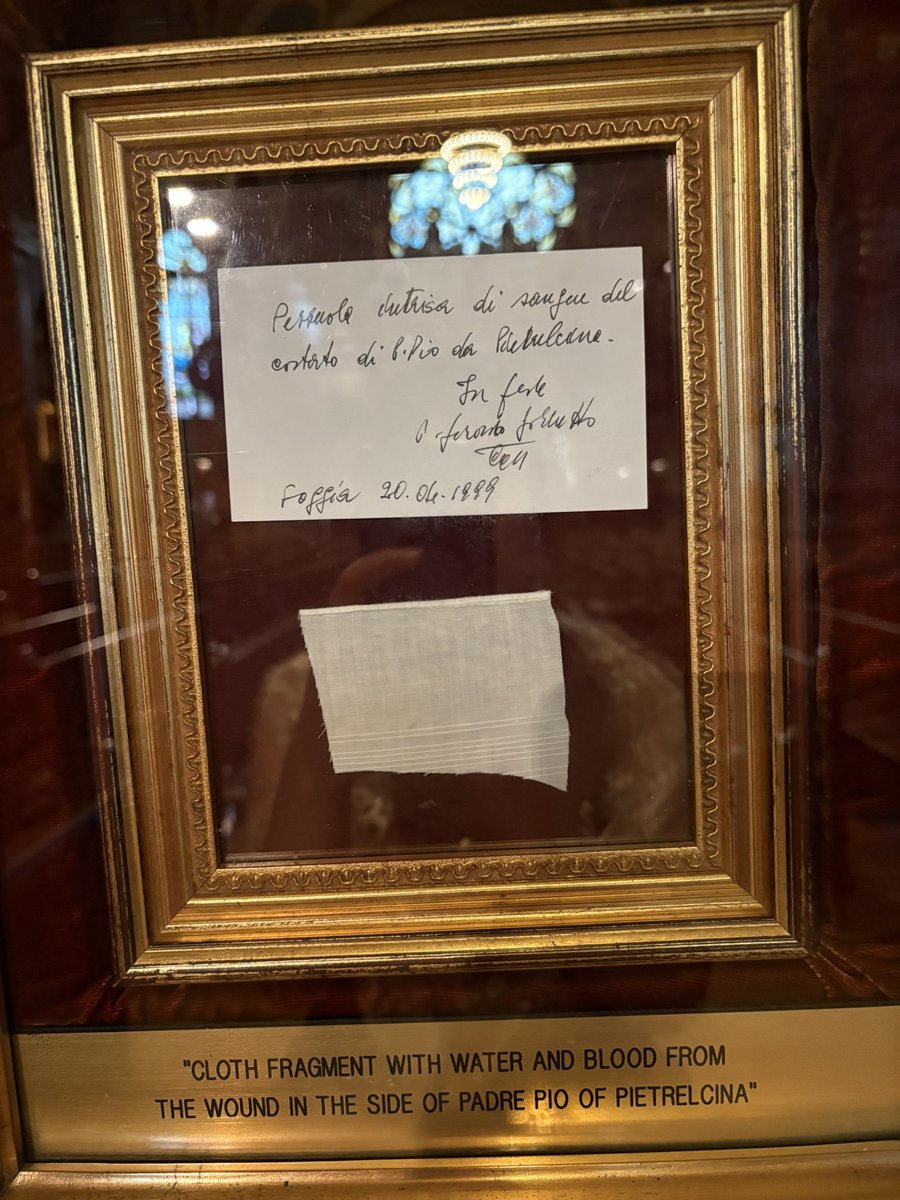 Pezzuola intrisa di sangue del
costato di P. Pio da Pietrelcina.
In fede
Foggia 20.04.1999
"CLOTH FRAGMENT WITH WATER AND BLOOD FROM
THE WOUND IN THE SIDE OF PADRE PIO OF PIETRELCINA"